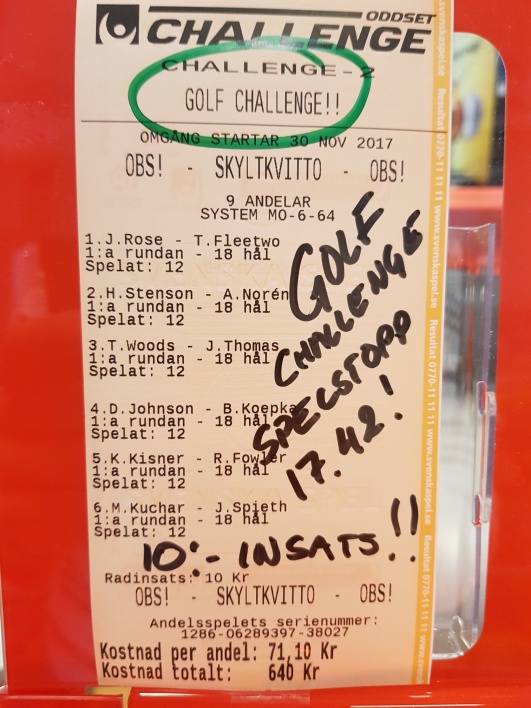 ODDSET
CHALLENGE
CHALLENGE - 2
GOLF CHALLENGE!!
OMGÅNG STARTAR 30 NOV 2017
OBS! - SKYLTKVITTO - OBS!
9 ANDELAR
SYSTEM MO-6-64
1.J.Rose - T.Fleetwo
1:a rundan - 18 hål
Spelat: 12
2.H.Stenson - A.Norén
1:a rundan - 18 hål
Spelat: 12
3.T.Woods - J.Thomas
1:a rundan - 18 hål
Spelat: 12
4.D.Johnson - B.Koepka
1:a rundan - 18 hål
Spelat: 12
5.K.Kisner - R.Fowler
1:a rundan - 18 hål
Spelat: 12
6.M.Kuchar - J.Spieth
1:a rundan - 18 hål
Spelat: 12
GOLF
CHALLENGE
SPELSTOPP
17.42!
10:- INSATS!!
Radinsats: 10 Kr
OBS! - SKYLTKVITTO - OBS!
Andelsspelets serienummer:
1286-06289397-38027
Kostnad per andel: 71,10 Kr
Kostnad totalt: 640 Kr
www.svenskaspel.se
Resultat 0770-11 11 11 www.svenskaspel.se
Resultat 0770-11 11 11 www.svenskaspel.se
Resultat 0770-11 11 11